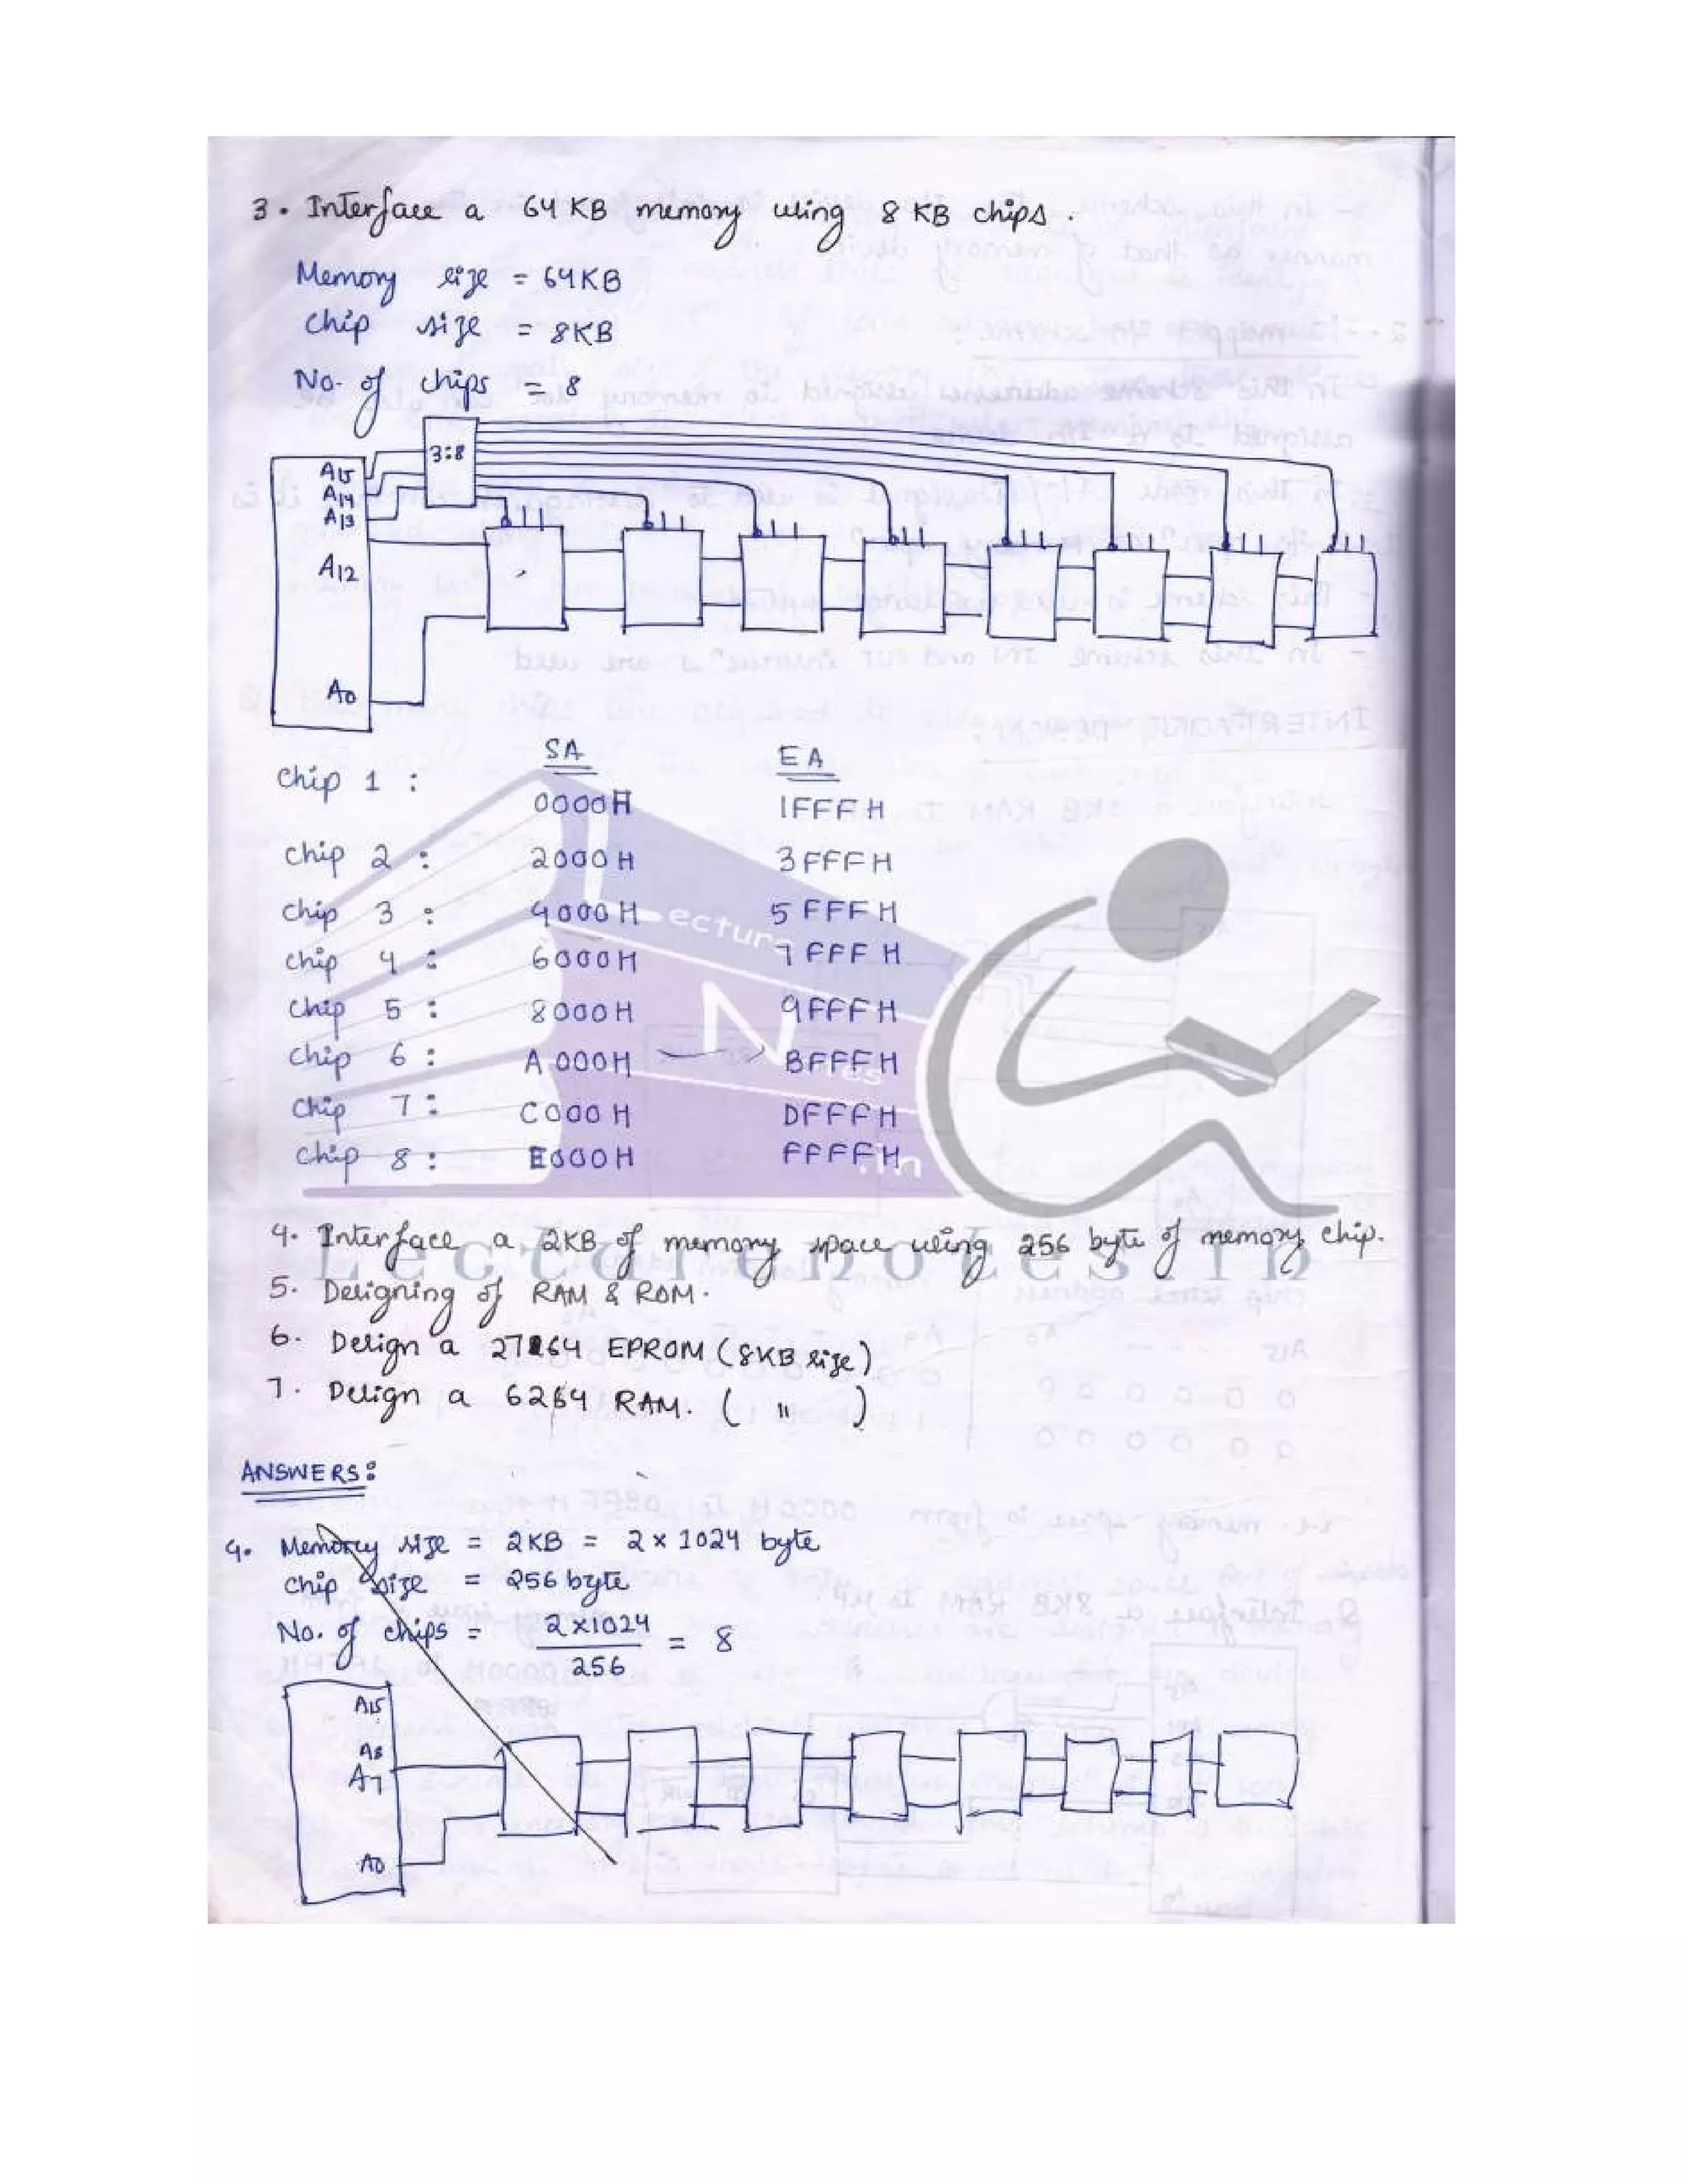 3. Interface a 64 KB memory using 8 KB chips.
Memory size = 64KB
Chip size = 8KB
No. of chips = 8
3:8
A15
A14
A13
A12
A0
SA EA
Chip 1 : 0000H 1FFFH
Chip 2 : 2000H 3FFFH
Chip 3 : 4000H 5FFFH
Chip 4 : 6000H 7FFFH
Chip 5 : 8000H 9FFFH
Chip 6 : A000H BFFFH
Chip 7 : C000H DFFFH
Chip 8 : E000H FFFFH
Lecture
Notes
.in
Lecturenotes.in
4. Interface a 2KB of memory space using 256 byte of memory chip.
5. Designing of RAM & ROM.
6. Design a 2764 EPROM (8KB size)
7. Design a 6264 RAM. ( " )
ANSWERS:
4. Memory size = 2KB = 2 x 1024 byte
Chip size = 256 byte
No. of chips = 2x1024 / 256 = 8
A15
A8
A7
A0